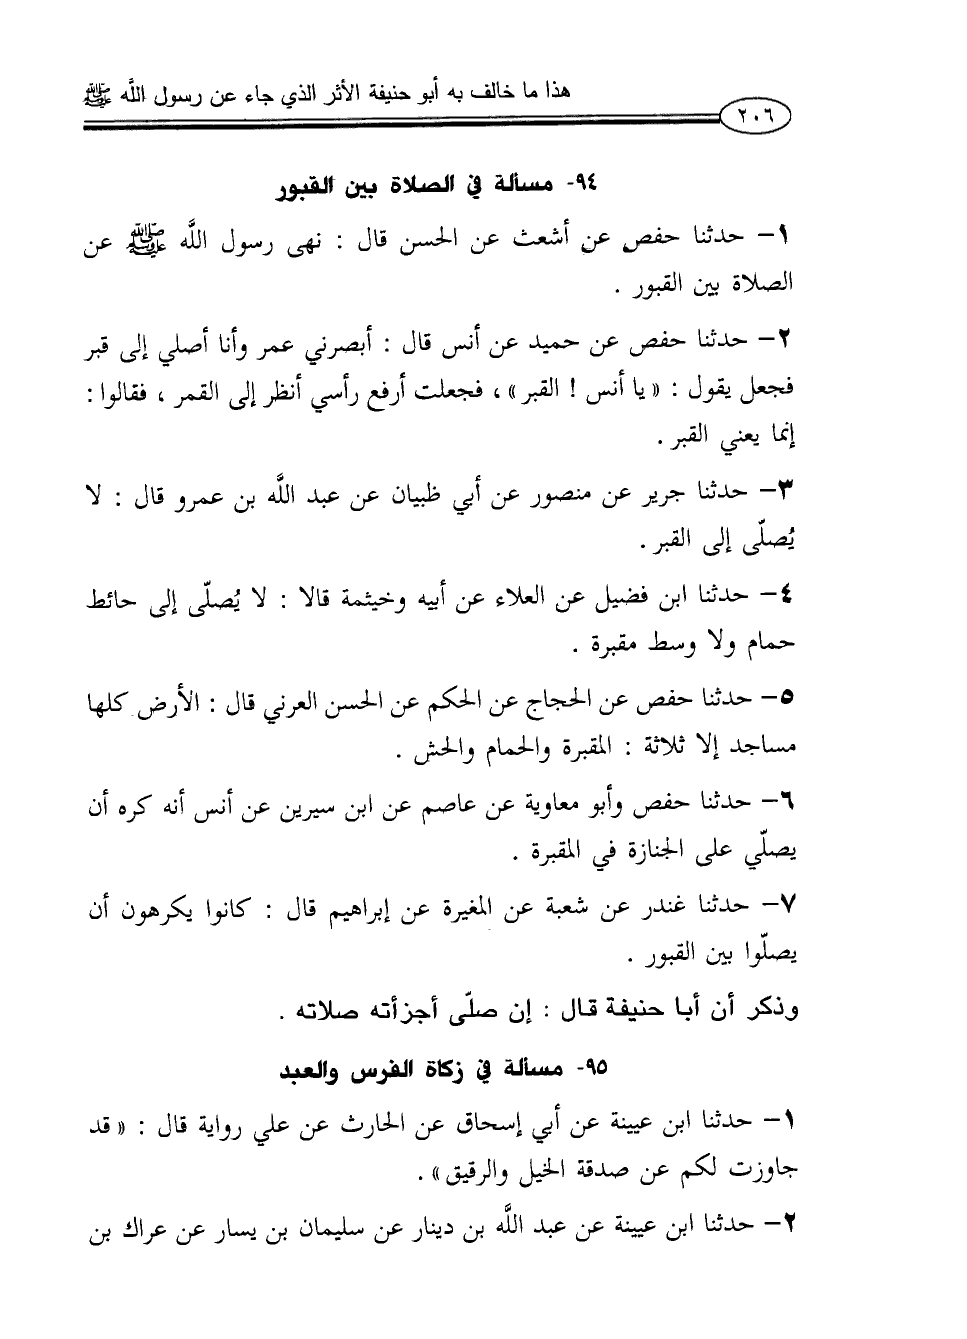 هذا ما خالف به أبو حنيفة الأثر الذي جاء عن رسول اللَّه ﷺ
٢٠٦
٩٤- مسألة في الصلاة بين القبور
١- حدثنا حفص عن أشعث عن الحسن قال : نهى رسول اللَّه ﷺ عن
الصلاة بين القبور .
٢- حدثنا حفص عن حميد عن أنس قال : أبصرني عمر وأنا أصلي إلى قبر
فجعل يقول : « يا أنس ! القبر » ، فجعلت أرفع رأسي أنظر إلى القمر ، فقالوا :
إنما يعني القبر .
٣- حدثنا جرير عن منصور عن أبي ظبيان عن عبد اللَّه بن عمرو قال : لا
يُصلّى إلى القبر .
٤- حدثنا ابن فضيل عن العلاء عن أبيه وخيثمة قالا : لا يُصلّى إلى حائط
حمام ولا وسط مقبرة .
٥- حدثنا حفص عن الحجاج عن الحكم عن الحسن العرني قال : الأرض كلها
مساجد إلا ثلاثة : المقبرة والحمام والحش .
٦- حدثنا حفص وأبو معاوية عن عاصم عن ابن سيرين عن أنس أنه كره أن
يصلّي على الجنازة في المقبرة .
٧- حدثنا غندر عن شعبة عن المغيرة عن إبراهيم قال : كانوا يكرهون أن
يصلّوا بين القبور .
وذكر أن أبا حنيفة قال : إن صلّى أجزأته صلاته .
٩٥- مسألة في زكاة الفرس والعبد
١- حدثنا ابن عيينة عن أبي إسحاق عن الحارث عن علي رواية قال : « قد
جاوزت لكم عن صدقة الخيل والرقيق » .
٢- حدثنا ابن عيينة عن عبد اللَّه بن دينار عن سليمان بن يسار عن عراك بن